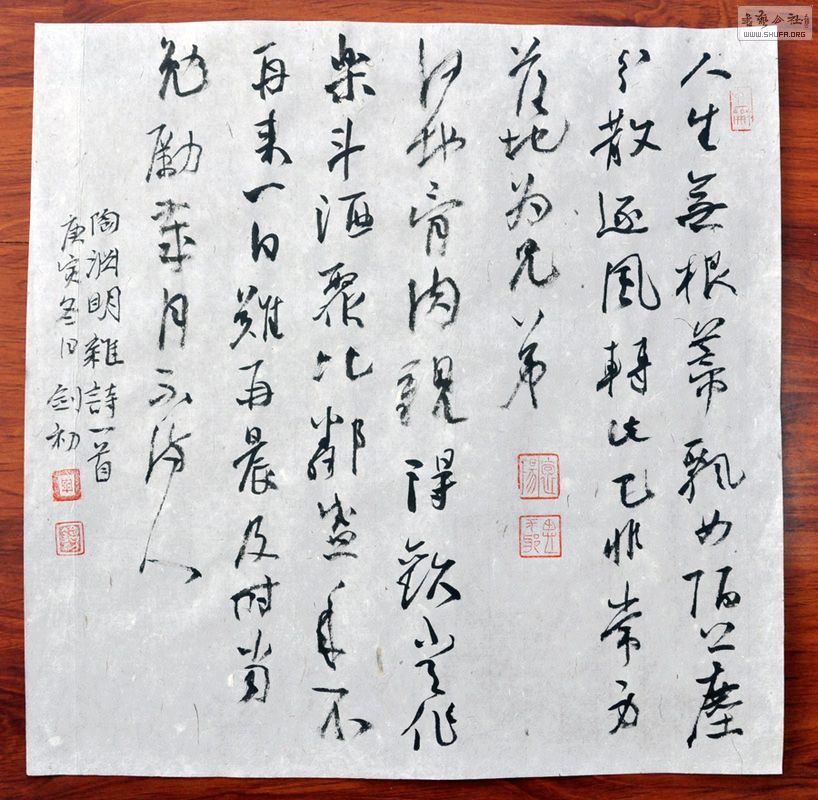 人生無根蒂飄如陌上塵
分散逐風轉此已非常身
落地为兄弟
何必骨肉親得歡當作
樂斗酒聚比鄰盛年不
再来一日難再晨及時當
勉勵歲月不待人
陶淵明雜詩一首
庚寅冬日劍初
書藝公社
WWW.SHUFA.ORG